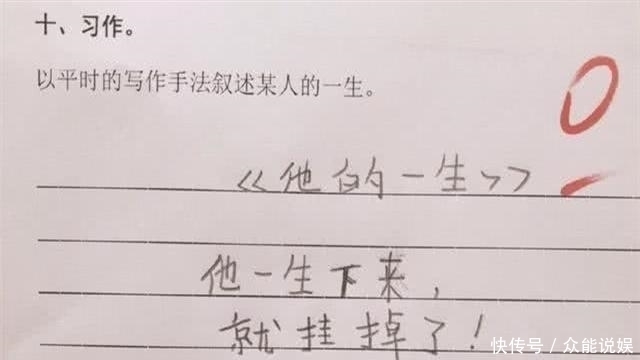 十、习作。
以平时的写作手法叙述某人的一生。
0
《他的一生》
他一生下来,
就挂掉了!
快传号/众能说娱